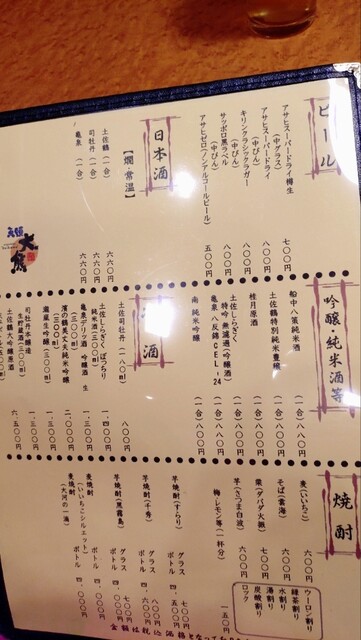 ビール
アサヒスーパードライ樽生
(中グラス) 七〇〇
アサヒスーパードライ
(中びん) 八〇〇
キリンクラシックラガー
(中びん) 八〇〇
サッポロ黒ラベル
(中びん) 八〇〇
アサヒゼロ(ノンアルコールビール)
五〇〇
日本酒
【燗・常温】
土佐鶴 (一合) 六六〇
司牡丹 (一合) 六六〇
亀泉 (一合) 六六〇
吟醸・純米酒等
船中八策純米酒
(一合) 八〇〇円
土佐鶴特別純米豊穣
(一合) 八〇〇円
桂月原酒
(一合) 八〇〇円
土佐しらぎく
特吟無濾過(吟醸酒)
(一合) 八〇〇円
亀泉 八反錦CEL・24
(一合) 八〇〇円
南 純米吟醸
(一合) 八〇〇円
酒
土佐司牡丹(一八〇ml)
八〇〇
土佐しらぎくぼっちり
純米酒(三〇〇ml)
一、四〇〇
亀泉デリツ酒 吟醸酒 生
(三〇〇ml) 一、三〇〇
濱の鶴美丈夫純米吟醸
(三〇〇ml) 二、〇〇〇
瀧嵐生吟醸(三〇〇ml)
一、三〇〇
司牡丹本醸造
生貯蔵酒(三〇〇ml)
一、三〇〇
土佐鶴大吟醸原酒
六、五〇〇
焼酎
麦(いいちこ) 六〇〇
そば(雲海) 六〇〇
栗(ダバダ火振) 六〇〇
芋(さつま白波) 六〇〇
梅レモン等(一杯分) 一五〇
ウーロン割り
緑茶割り
水割り
湯割り
炭酸割り
ロック
芋焼酎(すらり)
グラス 七〇〇
ボトル 四、五〇〇
芋焼酎(千寿)
グラス 八〇〇
ボトル
芋焼酎(黒霧島)
グラス 七〇〇
ボトル 四、〇〇〇
麦焼酎
(いいちこシルエット)
ボトル 四、〇〇〇
麦焼酎
(大河の一滴)
ボトル 四、〇〇〇
金額は税込価格となって